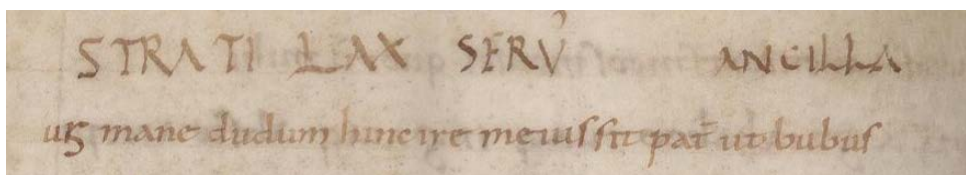 STRATI LAX SERV' ANCILLA
mane dudum hinc ire me iussit pat̄ ut bubus